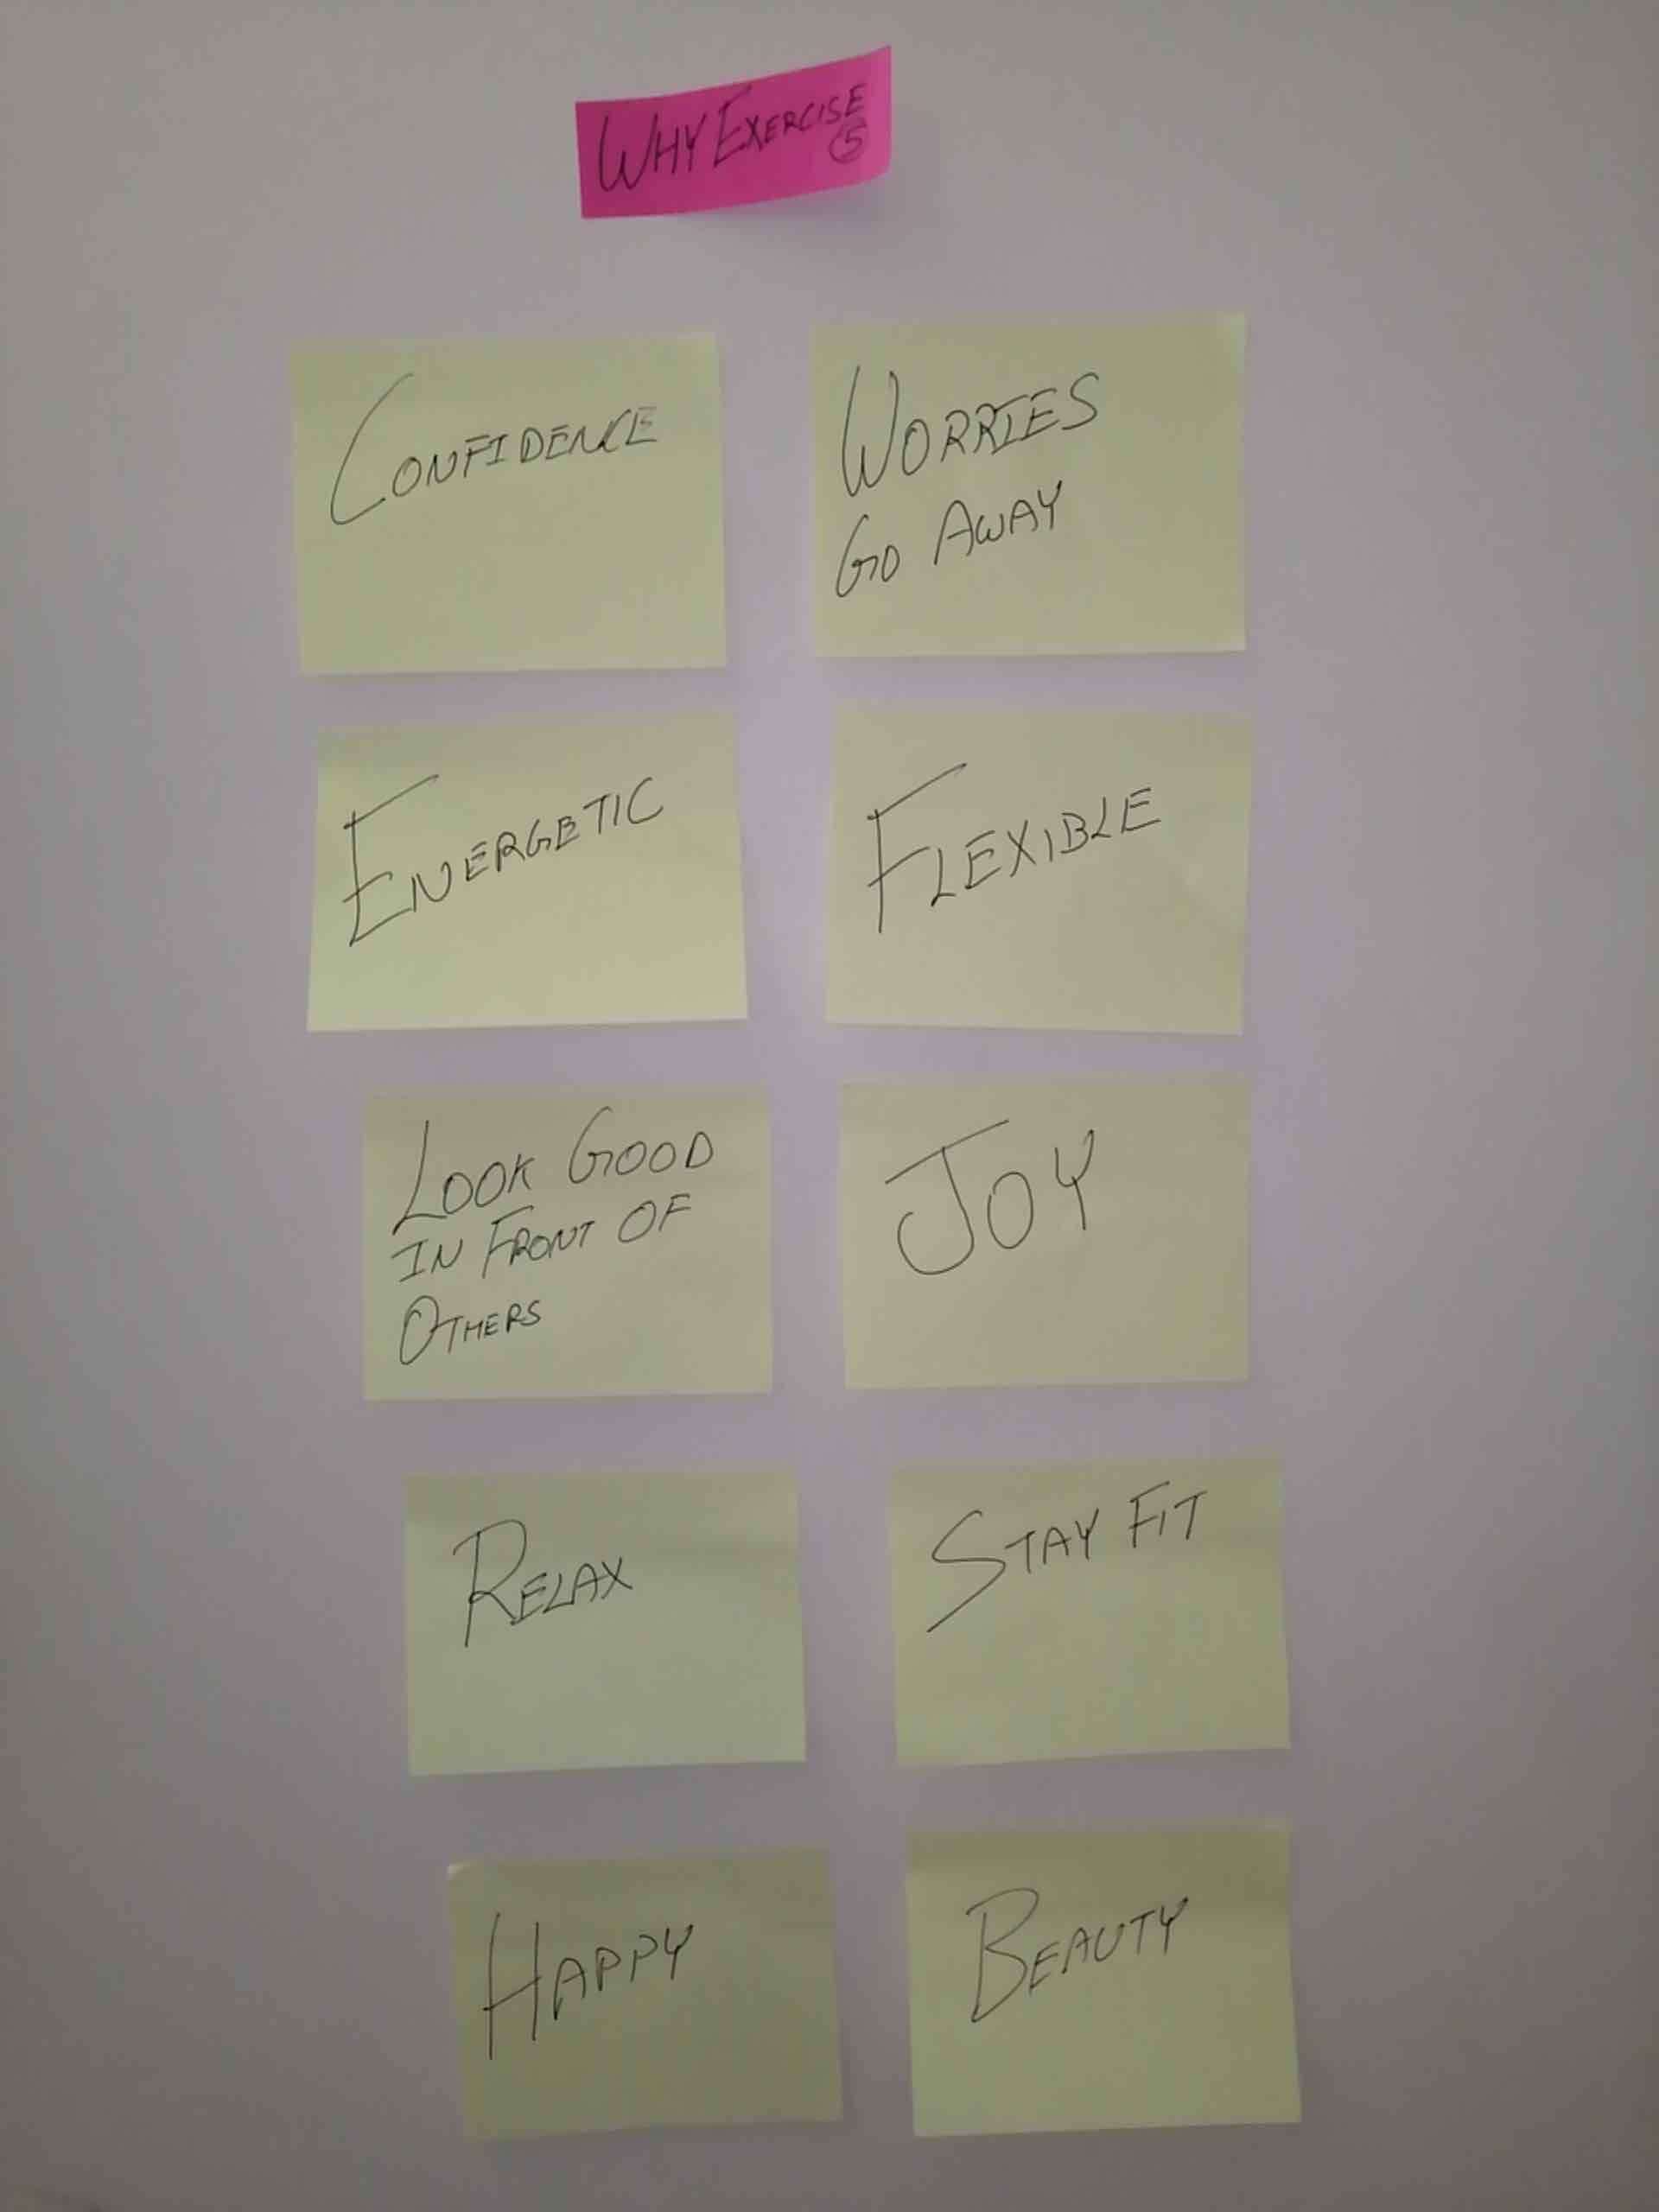 WHY EXERCISE
5
CONFIDENCE
WORRIES
GO AWAY
ENERGETIC
FLEXIBLE
LOOK GOOD
IN FRONT OF
OTHERS
JOY
RELAX
STAY FIT
HAPPY
BEAUTY